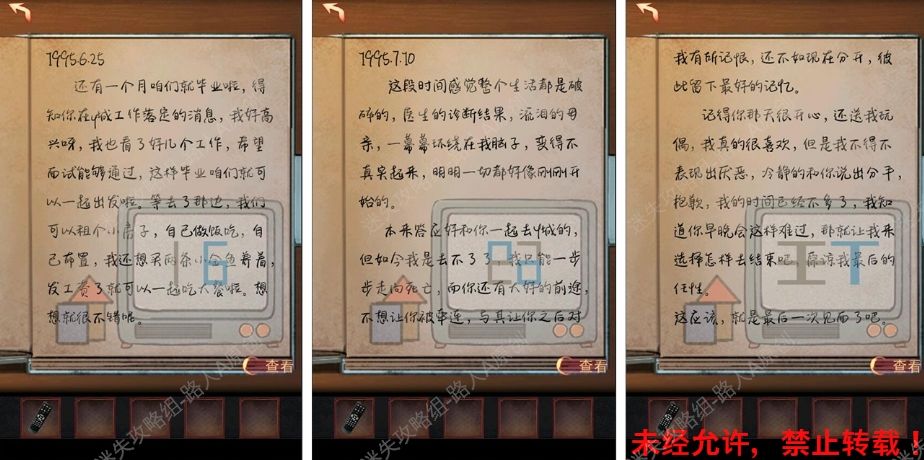 1995.6.25
还有一个月咱们就毕业啦，得
知你在y城工作落定的消息，我好高
兴呀，我也看了好几个工作，希望
面试能够通过，这样毕业咱们就可
以一起出发啦。等去了那边，我们
可以租个小房子，自己做饭吃，自
己布置，我还想买两条小金鱼养着，
发工资了就可以一起吃大餐啦。想
想就很不错呢。
查看
1995.7.10
这段时间感觉整个生活都是破
碎的，医生的诊断结果，流泪的母
亲，一幕幕环绕在我脑子，变得不
真实起来，明明一切都好像刚刚开
始的。
本来答应好和你一起去y城的，
但如今我是去不了了，我只能一步
步走向死亡，而你还有大好的前途，
不想让你被牵连，与其让你之后对
查看
我有所记恨，还不如现在分开，彼
此留下最好的记忆。
记得你那天很开心，还送我玩
偶，我真的很喜欢，但是我不得不
表现出厌恶，冷静的和你说出分手，
抱歉，我的时间已经不多了，我知
道你早晚会这样难过，那就让我来
选择怎样去结束吧，原谅我最后的
任性。
这应该，就是最后一次见面了吧。
查看
迷失攻略组-路人A原创
未经允许，禁止转载！